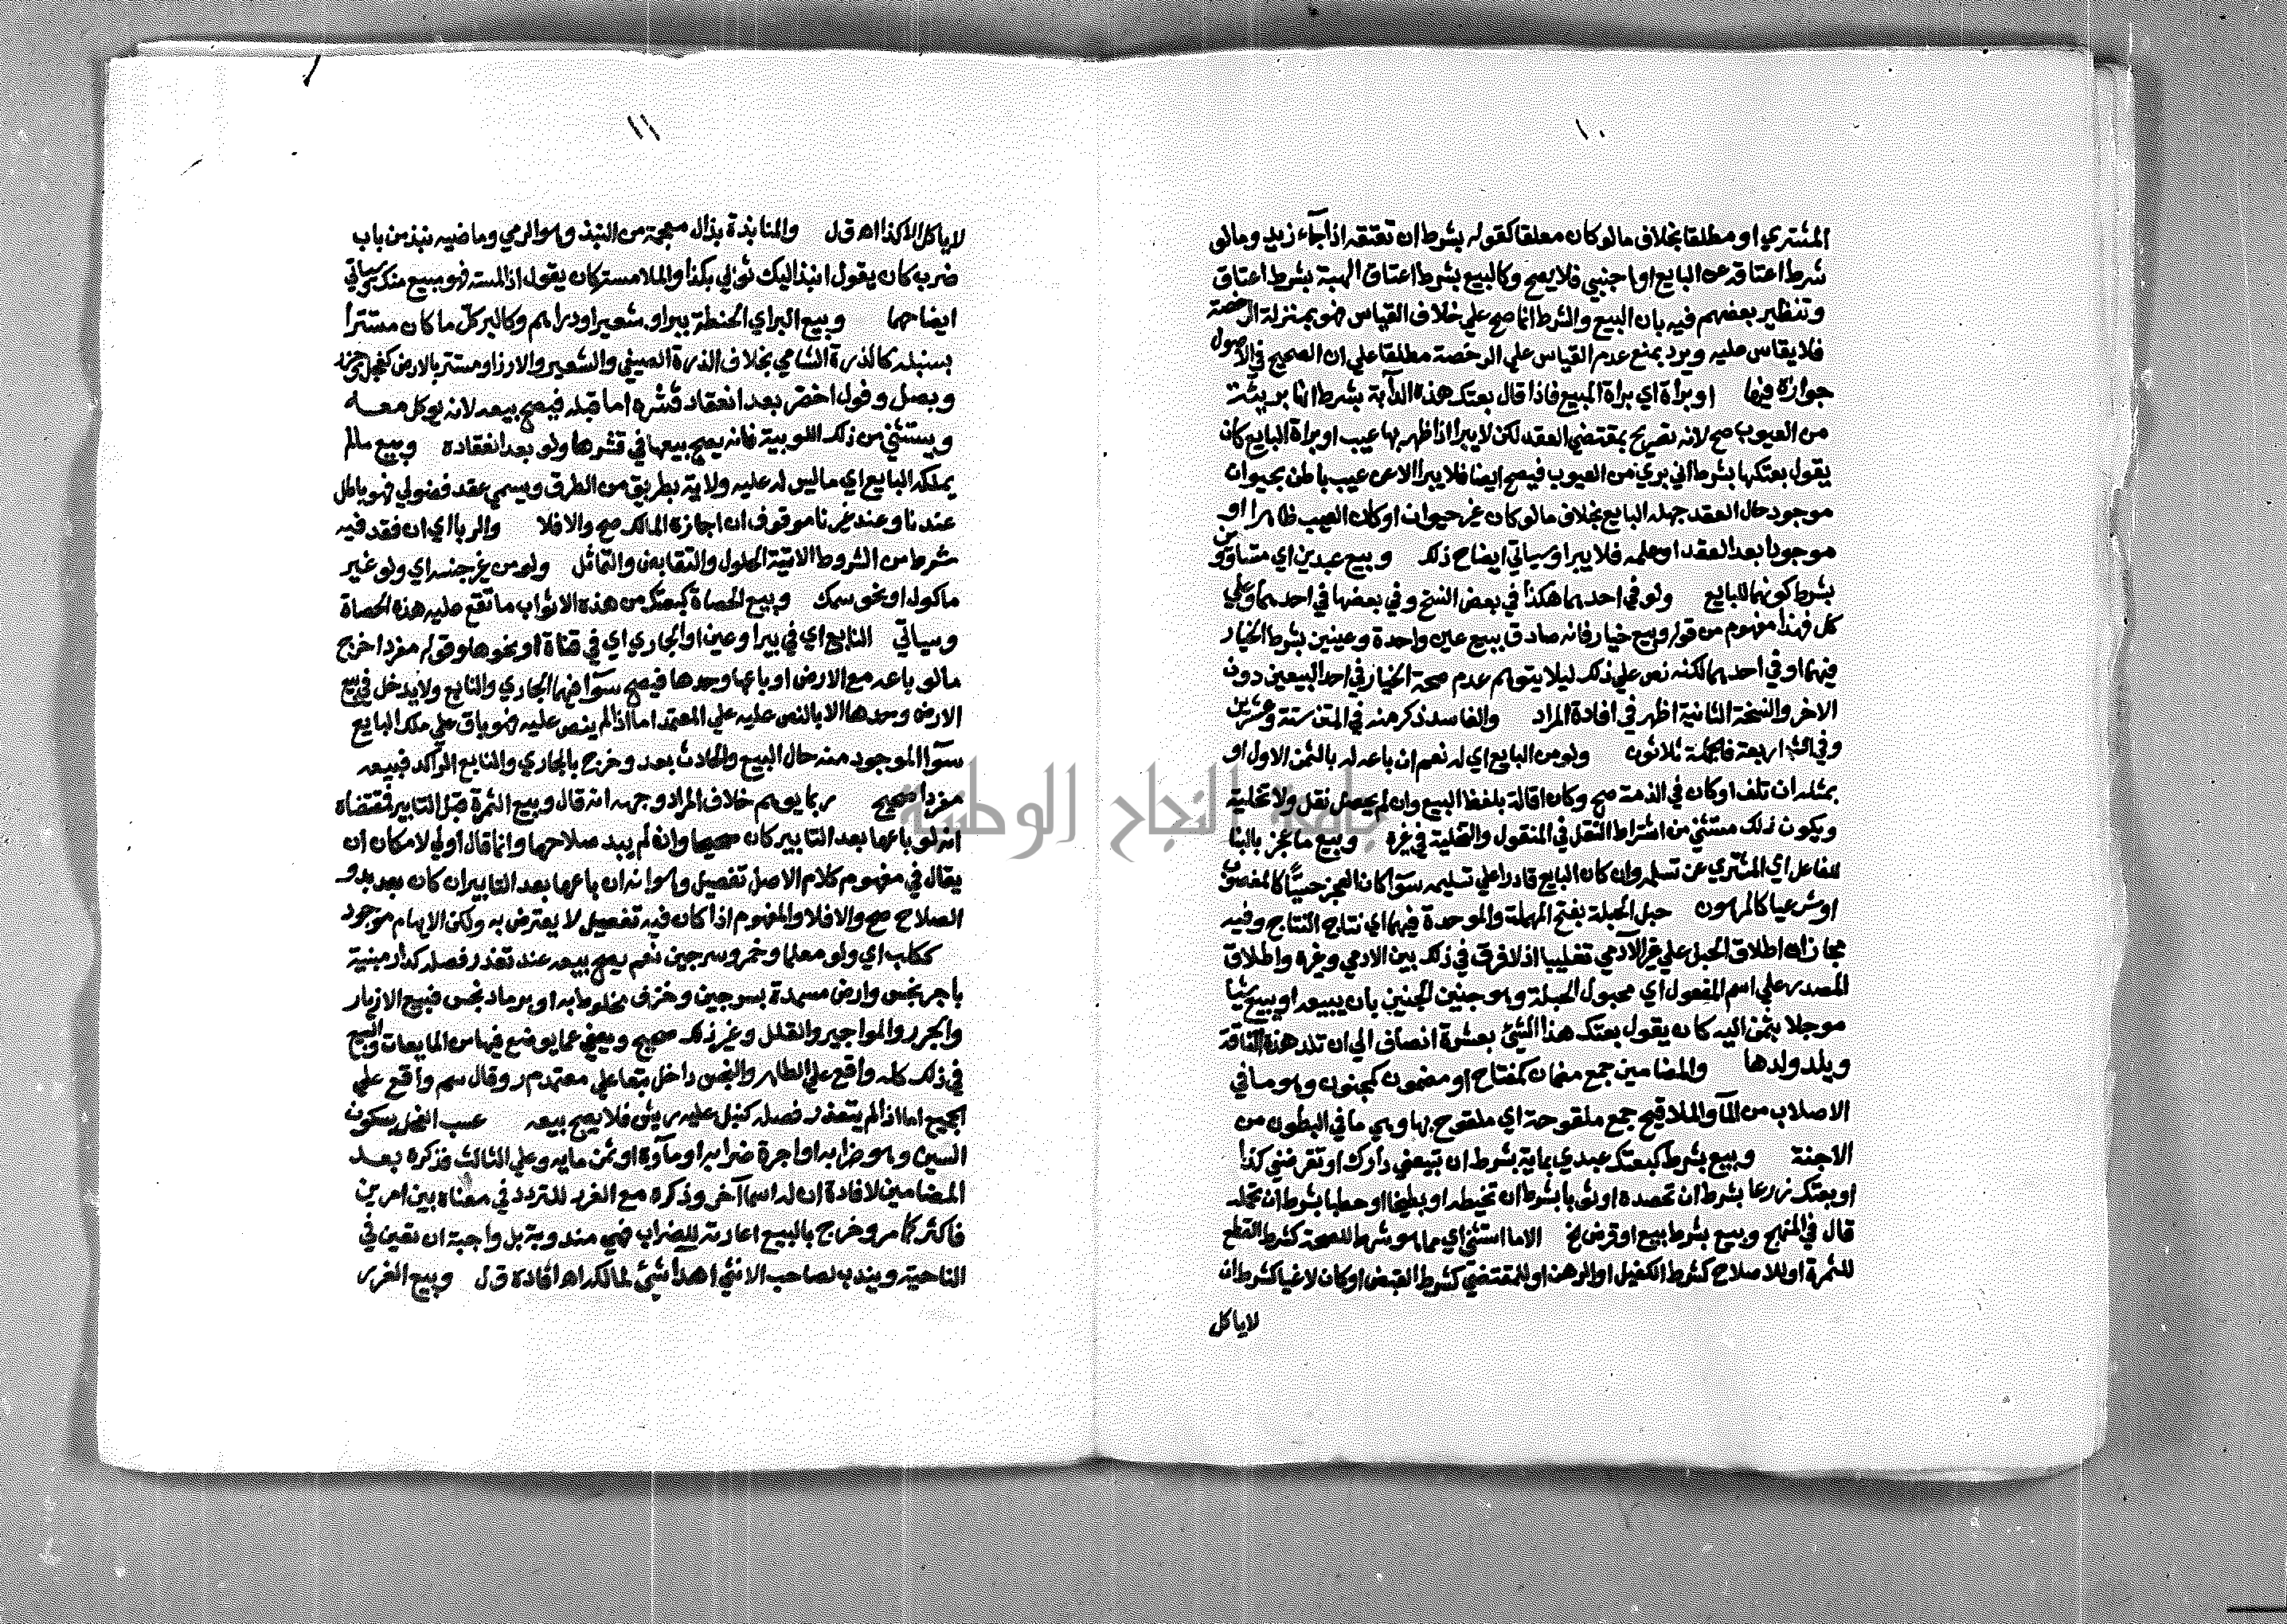 ١٠
المشتري او مطلقا بخلاف مالو كان معلقا كقوله بشرط ان تعتقه اذا جاء زيد ومالو
شرط اعتاقه عن البايع او اجنبي فلا يصح وكالبيع بشرط اعتاق الهبة بشرط اعتاق
وتنظير بعضهم فيه بان البيع والشرط انما صح علي خلاف القياس فهو بمنزلة الرخصة
فلا يقاس عليه ويرد بمنع عدم القياس علي الرخصة مطلقا علي ان الصحيح في الاصول
جوازه فيها او براة اي براة المبيع فاذا قال بعتك هذه الدآبة بشرط انها بريئة
من العيوب صح لانه تصريح بمقتضي العقد لكن لا يبرا اذا ظهر بها عيب او براة البايع كان
يقول بعتكها بشرط اني بري من العيوب فيصح ايضا فلا يبرا الا عن عيب باطن بحيوان
موجود حال العقد جهله البايع بخلاف مالو كان غير حيوان او كان العيب ظاهرا او
موجودا بعد العقد او علمه فلا يبرا وسياتي ايضاح ذلك وبيع عبدين اي متساويين
بشرط كونهما للبايع ولو في احدهما هكذا في بعض النسخ وفي بعضها في احدهما وعلي
كل فهذا مفهوم من قوله وبيع خيار فانه صادق ببيع عين واحدة وعينين بشرط الخيار
فيهما او في احدهما لكنه نص علي ذلك ليلا يتوهم عدم صحة الخيار في احد البيعين دون
الاخر والنسخة الثانية اظهر في افادة المراد والفاسد ذكر منه في المتن ستة وعشرين
وفي الشـ اربعة فالجملة ثلاثون ولو من البايع اي له نعم ان باعه له بالثمن الاول او
بمثله ان تلف او كان في الذمة صح وكان اقالة بلفظ البيع وان لم يحصل نقل ولا تخلية
ويكون ذلك مستثني من اشتراط النقل في المنقول والتخلية في غيره وبيع ما عجز بالبنا
للفاعل اي المشتري عن تسلمه وان كان البايع قادرا علي تسليمه سوآ كان العجز حسيا كالمغصوب
او شرعيا كالمرهون حبل الحبلة بفتح المهملة والموحدة فيهما اي نتاج النتاج وفيه
مجازان اطلاق الحبل علي غير الآدمي تغليبا اذ لا فرق في ذلك بين الادمي وغيره واطلاق
المصدر علي اسم المفعول اي محبول الحبلة وهو جنين الجنين بان يبيعه او يبيع شيا
موجلا بثمن اليه كان يقول بعتك هذا الشئ بعشرة انصاف الي ان تلد هذه الناقة
ويلد ولدها والمضامين جمع مضمان كمفتاح او مضمون كمجنون وهو ما في
الاصلاب من المآ والملاقيح جمع ملقوحة اي ملقوح بها وهي ما في البطون من
الاجنة وبيع بشرط كبعتك عبدي بماية بشرط ان تبيعني دارك او تقرضني كذا
او بعتك زرعا بشرط ان تحصده او ثوبا بشرط ان تخيطه او بطيخا او حطبا بشرط ان تحمله
قال في المنهج وبيع بشرط بيع او قرض لخ الا ما استثني اي مما هو شرط للصحة كشرط القطع
للثمرة او للاصلاح كشرط الكفيل او الرهن او للمقتضي كشرط القبض او كان لاغيا كشرط ان
لا ياكل
١١
لا ياكل الا كذا اه ق ل والمنابذة بذال معجمة من النبذ وهو الرمي وماضيه نبذ من باب
ضرب كان يقول انبذ اليك ثوبي بكذا والملامسة كان يقول اذا لمسته فهو مبيع منك وسياتي
ايضاحهما وبيع البر اي الحنطة ببر او شعير او دراهم وكالبر كل ما كان مستترا
بسنبله كالذرة الشامي بخلاف الذرة الصيفي والشعير والارز او مستتر بالارض كفجل وجزر
وبصل وفول اخضر بعد انعقاد قشره اما قبله فيصح بيعه لانه يوكل معـه
ويستثني من ذلك اللوبية فانه يصح بيعها في قشرها ولو بعد انعقاده وبيع مالم
يملكه البايع اي ما ليس له عليه ولاية بطريق من الطرق ويسمي عقد فضولي فهو باطل
عندنا وعند غيرنا موقوف ان اجازه المالك صح والا فلا والربا اي ان فقد فيه
شرط من الشروط الاتية الحلول والتقابض والتماثل ولو من غير جنسه اي ولو غير
ماكول او نحو سمك وبيع الحصاة كبعتك من هذه الاثواب ما تقع عليه هذه الحصاة
وسياتي النابع اي في بير او عين او الجاري اي في قناة او نحوها وقوله مفردا خرج
مالو باعه مع الارض او باعها وحدها فيصح سوآ فيهما الجاري والنابع ولا يدخل في بيع
الارض وحدها الا بالنص عليه علي المعتمد اما اذا لم ينص عليه فهو باق علي ملك البايع
سوآ الموجود منه حال البيع والحادث بعد وخرج بالجاري والنابع الراكد فبيعه
مفردا صحيح ربما يوهم خلاف المراد وجهه انه قال وبيع الثمرة قبل التابير فمقتضاه
انه لو باعها بعد التابير كان صحيحا وان لم يبد صلاحها وانما قال اولي لامكان ان
يقال في مفهوم كلام الاصل تفصيل وهو انه ان باعها بعد التابير ان كان بعد بدو
الصلاح صح والا فلا والمفهوم اذا كان فيه تفصيل لا يعترض به ولكن الايهام موجود
ككلب اي ولو معلما وخمر وسرجين نعم يصح بيعه عند تعذر فصله كدار مبنية
باجر نجس وارض مسمدة بسرجين وخزف مخلوط به او برماد نجس فبيع الازيار
والجرر والمواجير والقلل وغير ذلك صحيح ويعفي عما يوضع فيها من المايعات والبيع
في ذلك كله واقع علي الطاهر والنجس داخل تبعا علي معتمد م ر وقال سم واقع علي
الجميع اما اذا لم يتعذر فصله كنبل عليه ريش فلا يصح بيعه عسب الفحل بسكون
السين وهو ضرابه او اجرة ضرابه او مآوه او ثمن مايه وعلي الثالث فذكره بعـد
المضامين لافادة ان له اسما آخر وذكره مع الغرر للتردد في معناه بين امرين
فاكثر كما مر وخرج بالبيع اعارته للضراب فهي مندوبة بل واجبة ان تعين في
الناحية ويندب لصاحب الانثي اهدآ شئ لمالكه اه افاده ق ل وبيع الغرر